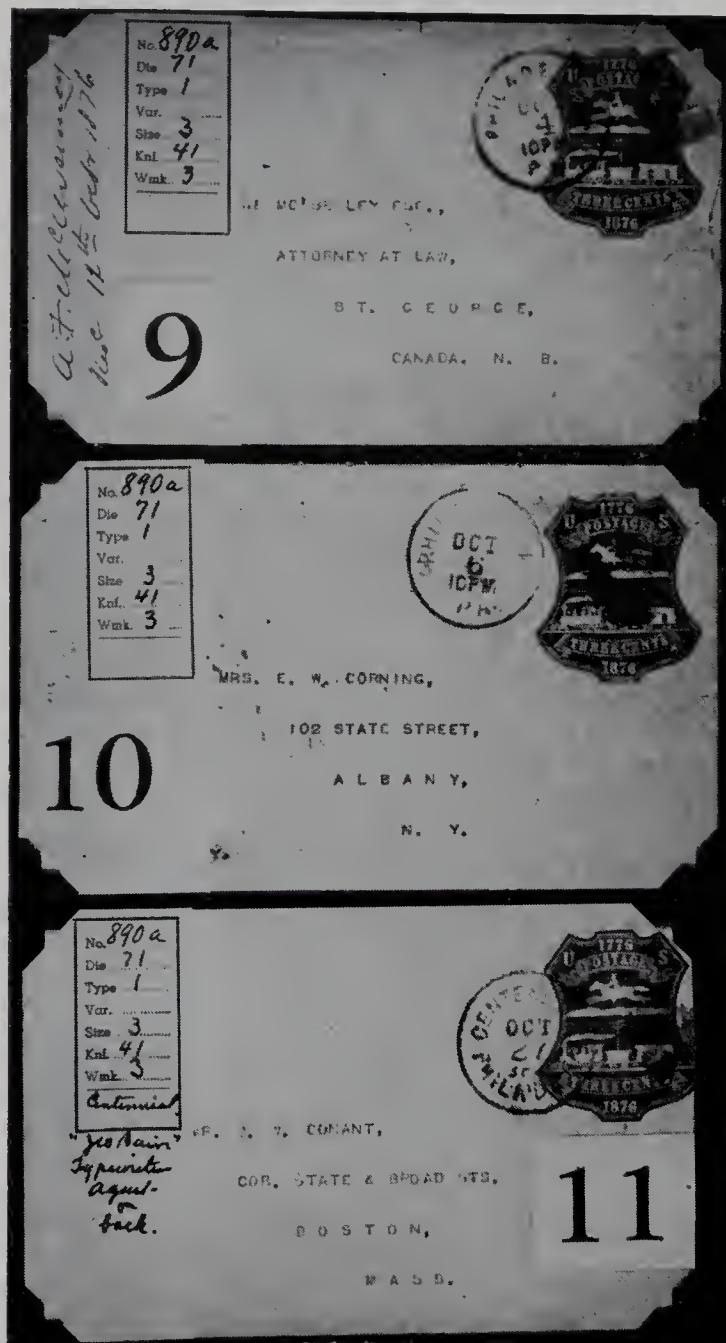 No. 890a
Die 71
Type 1
Var.
Size 3
Knf. 41
Wmk. 3
12th 1876
9
PHILAD
10
1776
U S
POSTAGE
THREE CENTS
1876
ATTORNEY AT LAW,
ST. GEORGE,
CANADA. N. B.
No. 890a
Die 71
Type 1
Var.
Size 3
Knf. 41
Wmk. 3
10
OCT
6
10PM
1776
U S
POSTAGE
THREE CENTS
1876
MRS. E. W. CORNING,
102 STATE STREET,
ALBANY,
N. Y.
No. 890a
Die 71
Type 1
Var.
Size 3
Knf. 41
Wmk. 3
Centennial
Typewriter
back.
OCT
21
PHILA
1776
U S
POSTAGE
THREE CEN
1876
CONANT,
COR. STATE & BROAD STS.
BOSTON,
MASS.
11